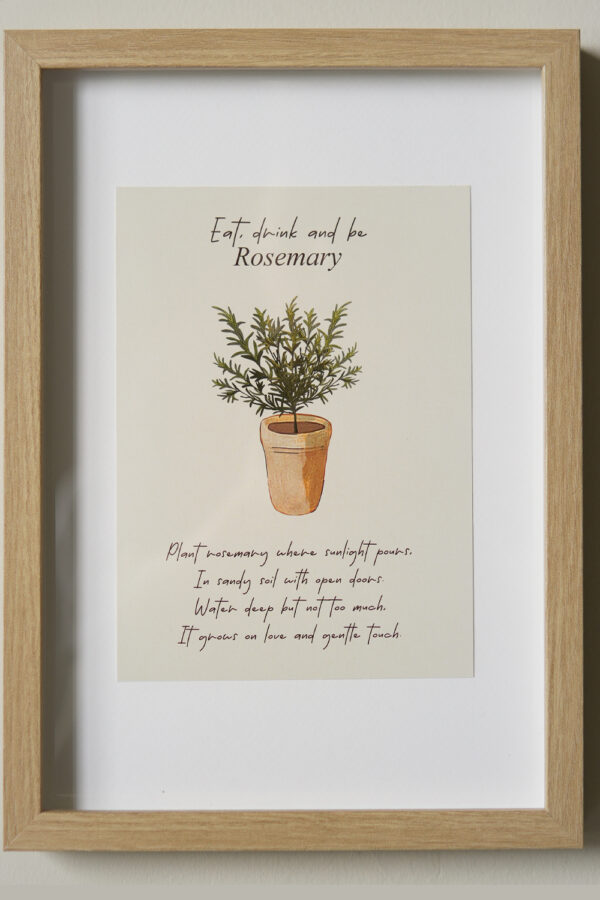 Eat, drink and be
Rosemary
Plant rosemary where sunlight pours.
In sandy soil with open doors.
Water deep but not too much.
It grows on love and gentle touch.